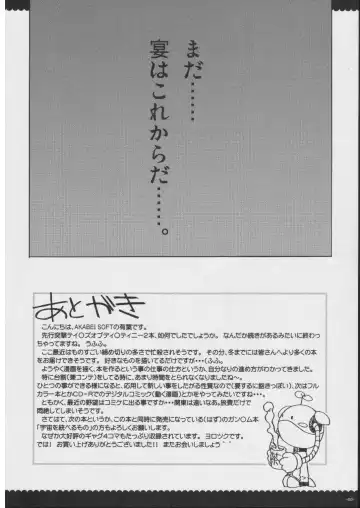 まだ……
宴はこれからだ……。
あとがき
こんにちは、AKABEI SOFTの有葉です。
先行突撃テイ〇ズオブディ〇ティニー2本、如何でしたでしょうか。なんだか続きがあるみたいに終わっ
ちゃってますね。うふふ。
ここ最近はものすごい締め切りの多さで忙殺されそうです。その分、冬までには皆さんへより多くの本
をお届けできそうです。好きなものを描いてるだけですが・・・(ふふ。
ようやく漫画を描く、本を作るという事の仕事の仕方というか、自分なりの進め方がわかってきました。
特に台割(兼コンテ)をしてる時に、あまり時間をとられなくなりましたね～。
ひとつの事ができる様になると、応用して新しい事をしたがる性質なので(要するに飽きっぽい)、次はフル
カラー本とかCD-Rでのデジタルコミック(動く漫画)とかをやってみたいですね・・・
ともかく、最近の野望はコミケに出る事ですか・・・関東は遠いなあ。旅費だけで
悶絶してしまいそうです。
さてはて、次の本というか、この本と同時に発売になっている(はず)のガン〇ム本
「宇宙を統べるもの」の方もよろしくお願いします。
なぜか大好評のギャグ4コマもたっぷり収録されています。ヨロシクです。
では! お買い上げありがとうございました!! またお会いしましょう＾＾